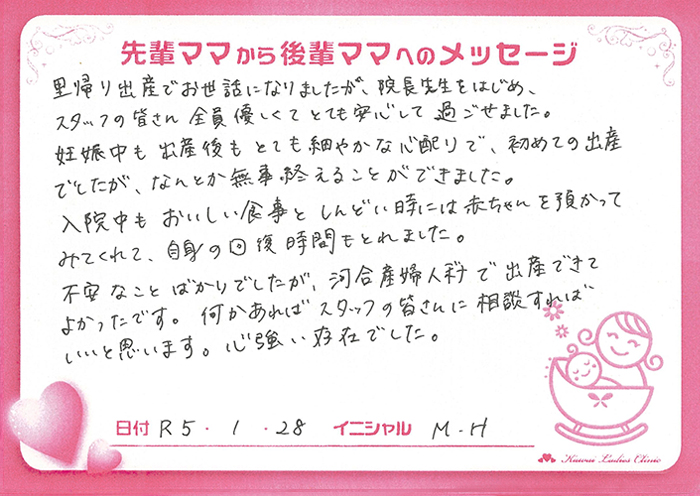 先輩ママから後輩ママへのメッセージ
里帰り出産でお世話になりましたが、院長先生をはじめ、
スタッフの皆さん全員優しくてとても安心して過ごせました。
妊娠中も出産後もとても細やかな心配りで、初めての出産
でしたが、なんとか無事終えることができました。
入院中もおいしい食事としんどい時には赤ちゃんを預かって
みてくれて、自身の回復時間もとれました。
不安なことばかりでしたが、河合産婦人科で出産できて
よかったです。何かあればスタッフの皆さんに相談すれば
いいと思います。心強い存在でした。
日付 R5・1・28 イニシャル M-H
Kawai Ladies Clinic